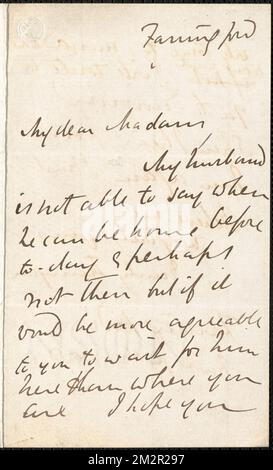 Farringford
My dear Madam
My husband
is not able to say when
he can be home before
to-day & perhaps
not then but if it
would be more agreeable
to you to wait for him
here than where you
are I hope you
alamy
Image ID: 2M2R297
www.alamy.com